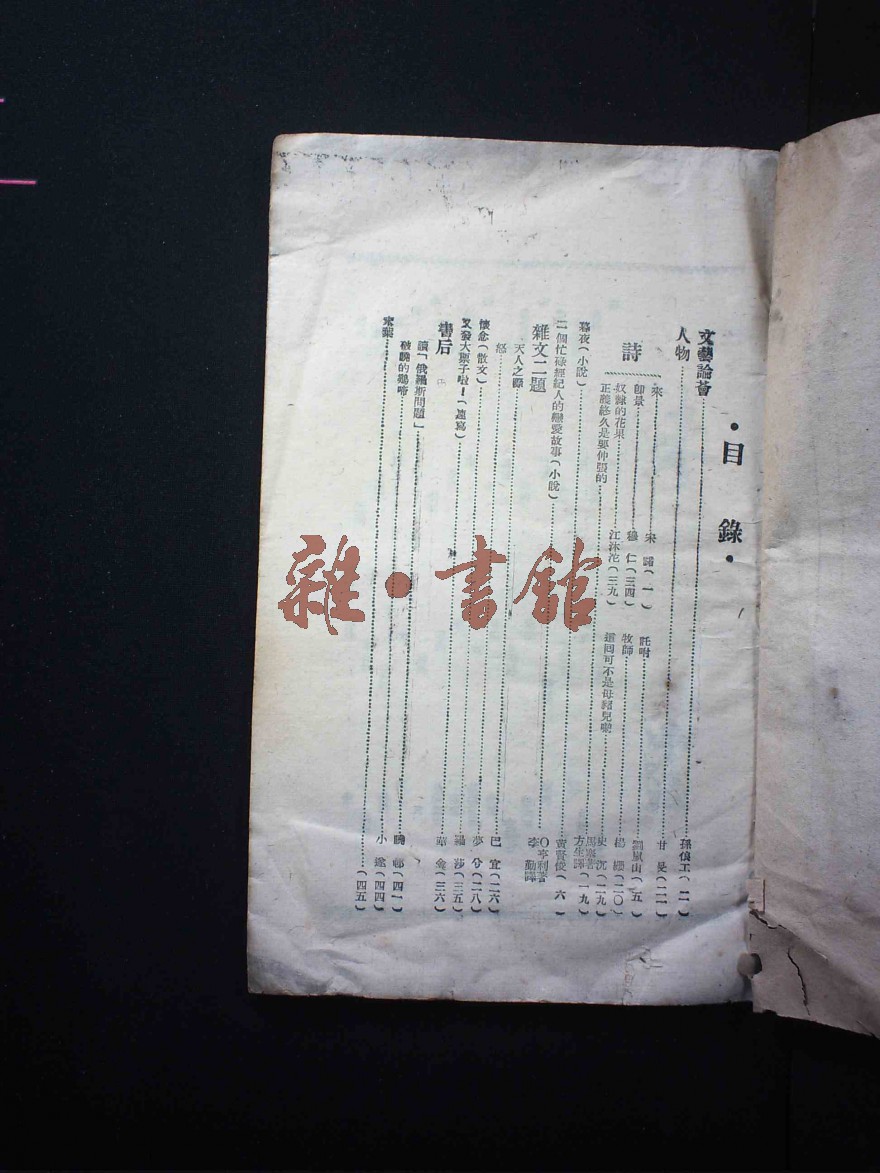 •目錄•
文藝論薈
孫俍工(二)
人物
甘旻(二二)
詩
來
宋 諾(一)
託咐
劉嵐山(五)
即景
穆 仁(三四)
牧師
楊 (二〇)
奴隸的花果
江沐沱(三九)
這回可不是母豬兒嘞
史 沉(二九)
正義終久是要伸張的
暮夜(小說)
方生譯(一九)
二個忙碌經紀人的戀愛故事(小說)
黃賢俊(六)
雜文二題
O亨利著
李 勤譯
天人之際
怒
巴 宜(二六)
懷念(散文)
夢 兮(二八)
又發大票子啦!(速寫)
羅 莎(三五)
書后
讀「俄羅斯問題」
破曉的鷄啼
小 (四四)
末葉
(四五)
雜•書館